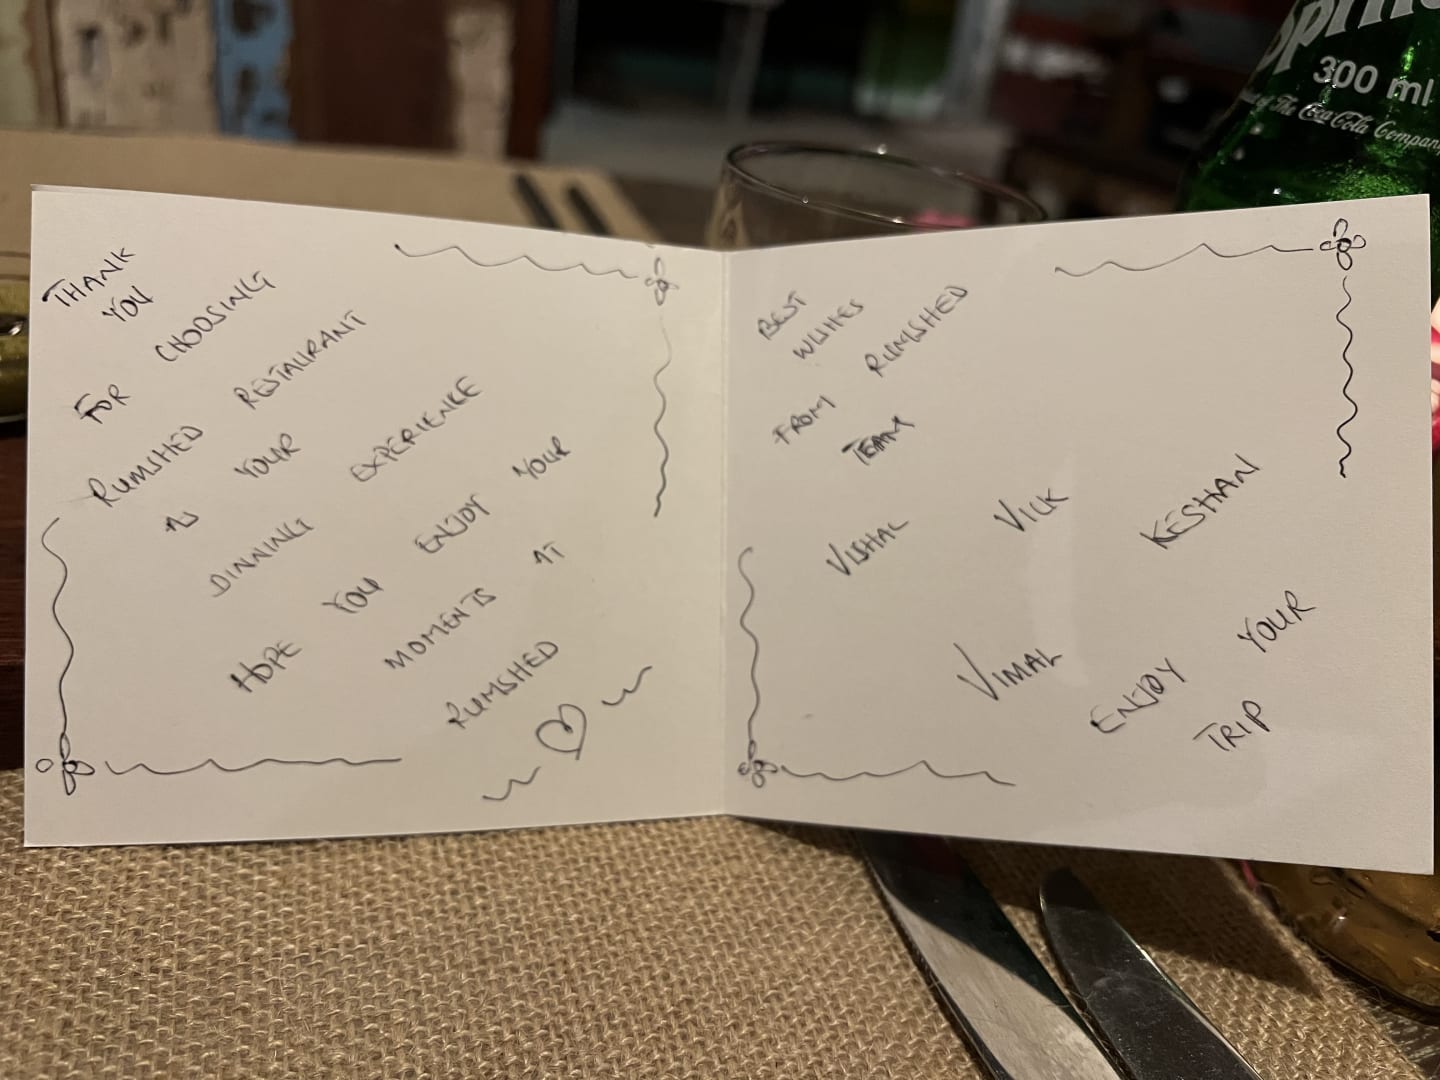 THANK
YOU
FOR CHOOSING
RUMSHED RESTAURANT
AS YOUR
DINNING EXPERIENCE
HOPE YOU ENJOY YOUR
MOMENTS AT
RUMSHED
BEST
WISHES
FROM RUMSHED
TEAM
VISHAL VICK KESHAN
VIMAL
ENJOY YOUR
TRIP
Sprite
300 ml
of The Coca-Cola Company